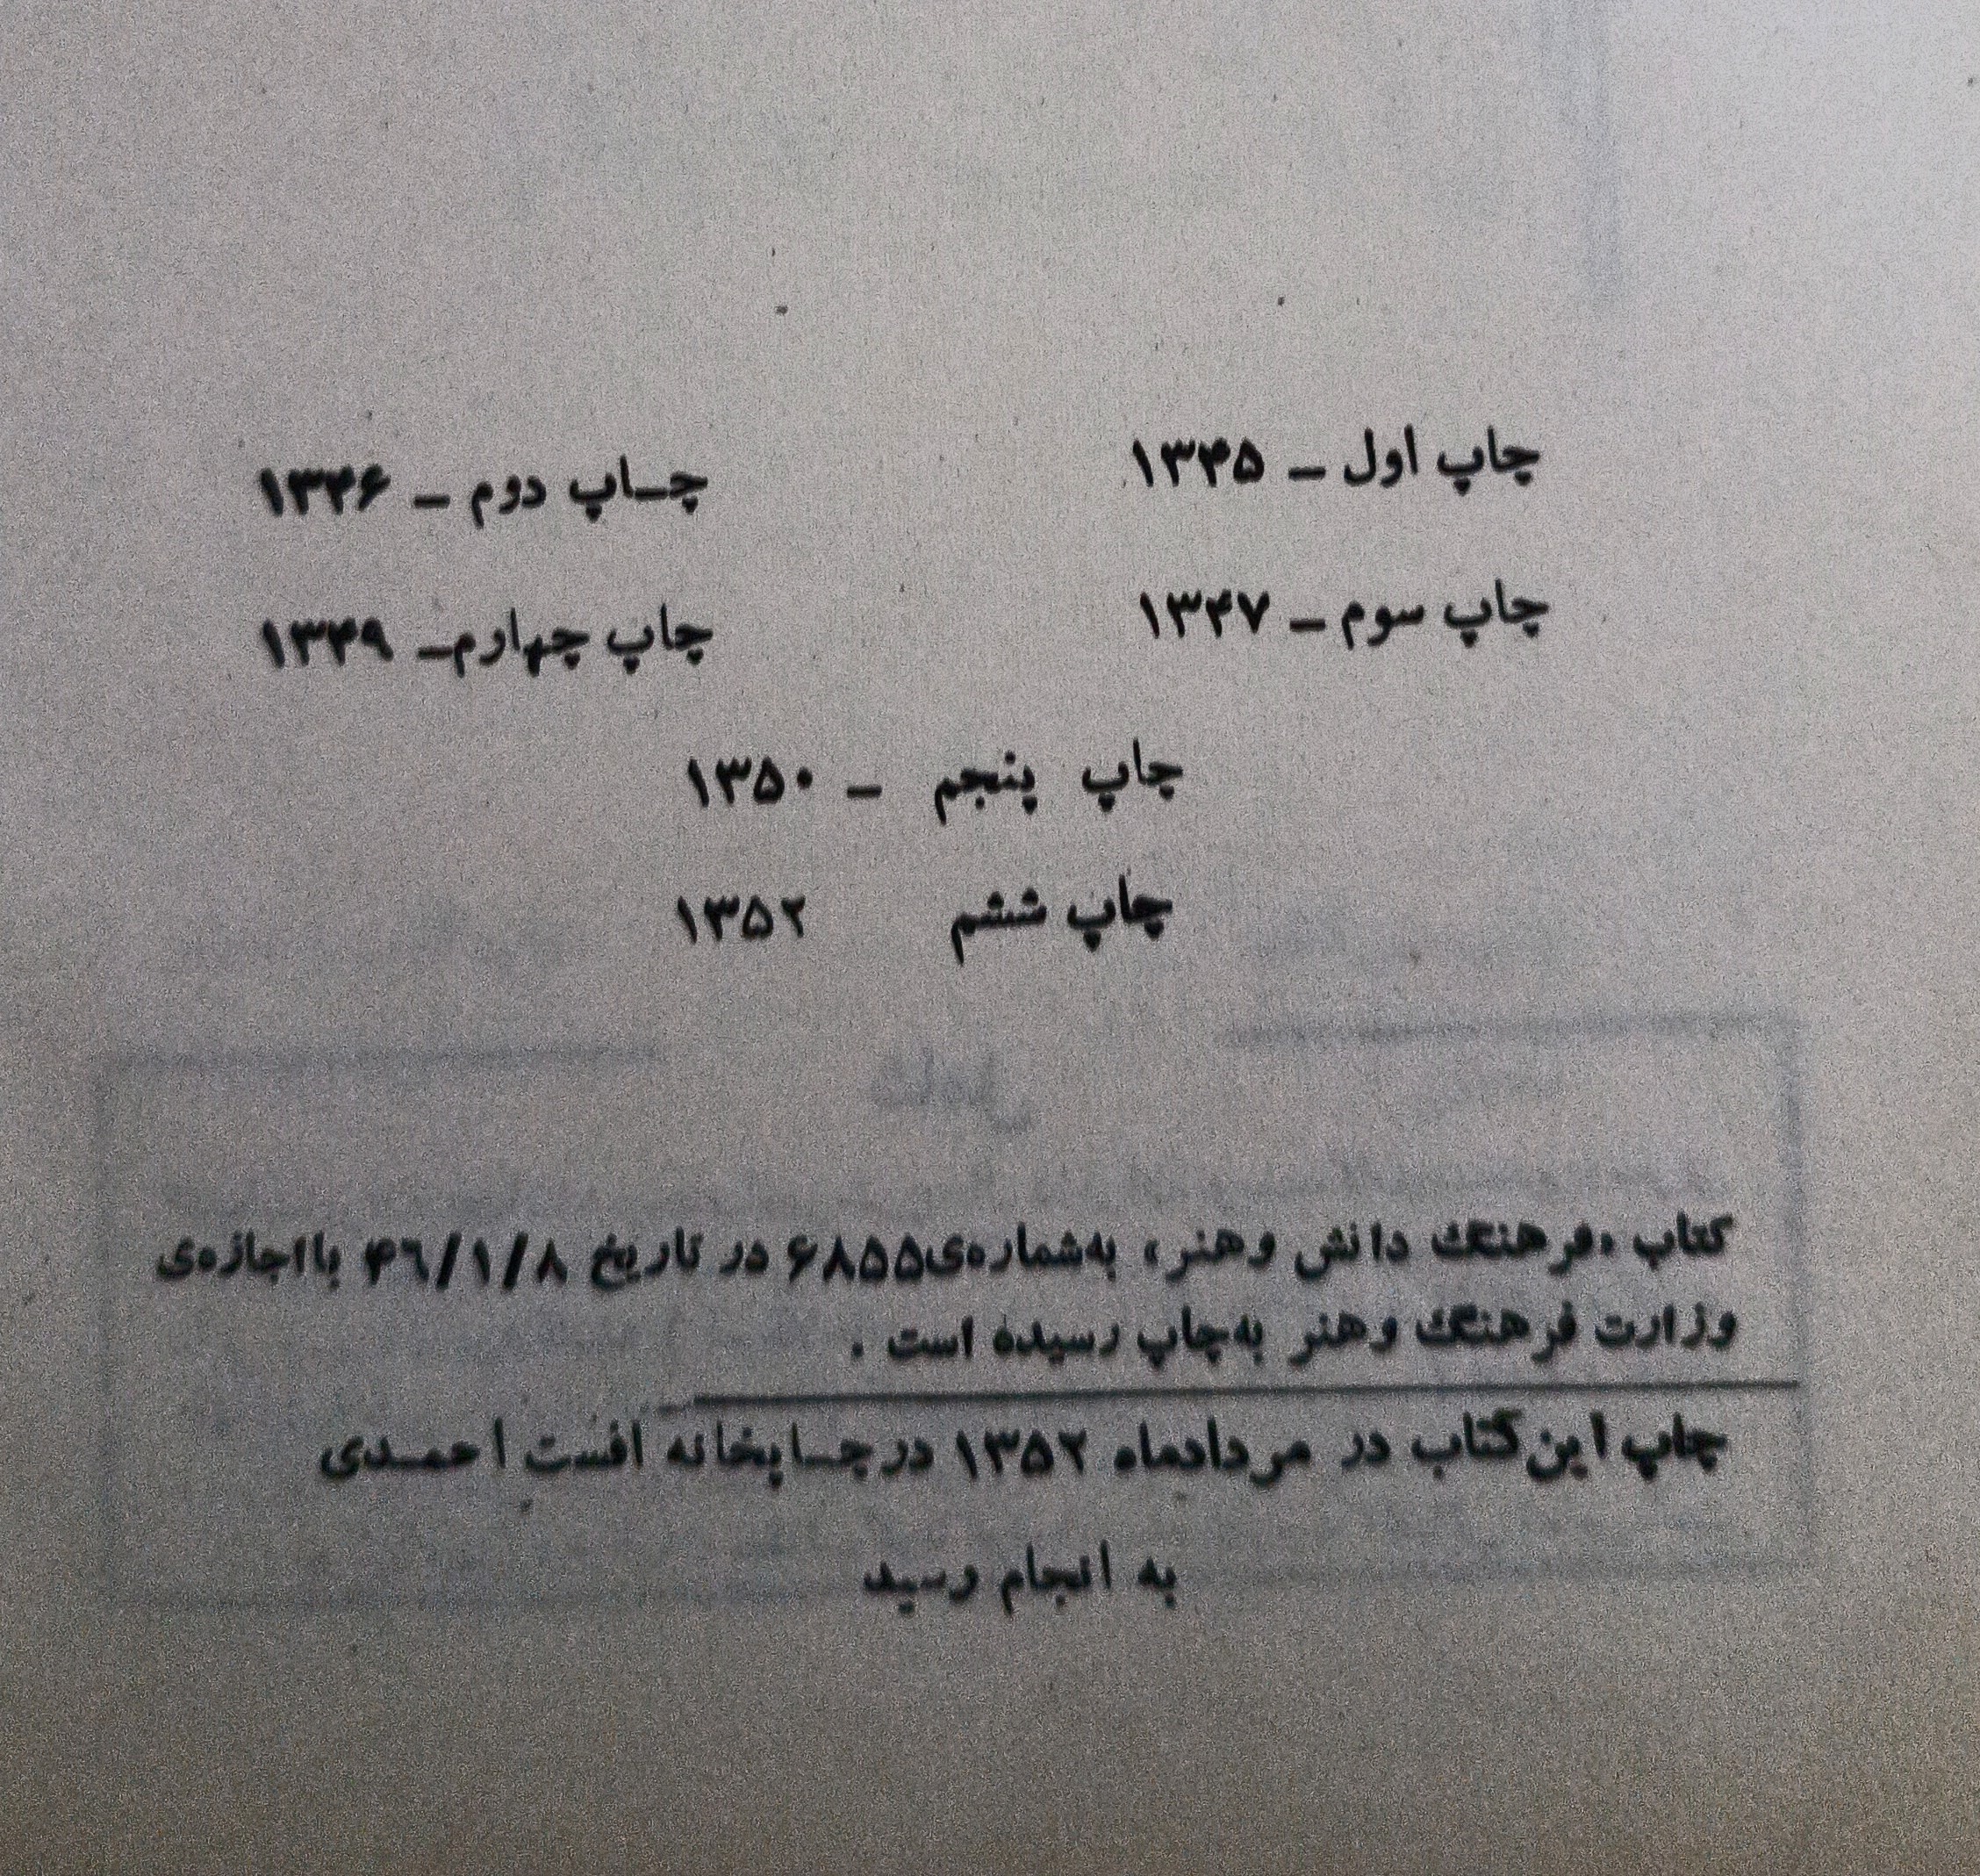 چاپ اول ـ ۱۳۴۵ چـاپ دوم ـ ۱۳۴۶
چاپ سوم ـ ۱۳۴۷ چاپ چهارم ـ ۱۳۴۹
چاپ پنجم ـ ۱۳۵۰
چاپ ششم ۱۳۵۲
کتاب «فرهنگ دانش وهنر» به‌شماره‌ی ۶۸۵۵ در تاریخ ۴۶/۱/۸ با اجازه‌ی
وزارت فرهنگ وهنر به‌چاپ رسیده است .
چاپ این‌کتاب در مردادماه ۱۳۵۲ در چـاپخانه افست احمـدی
به انجام رسید